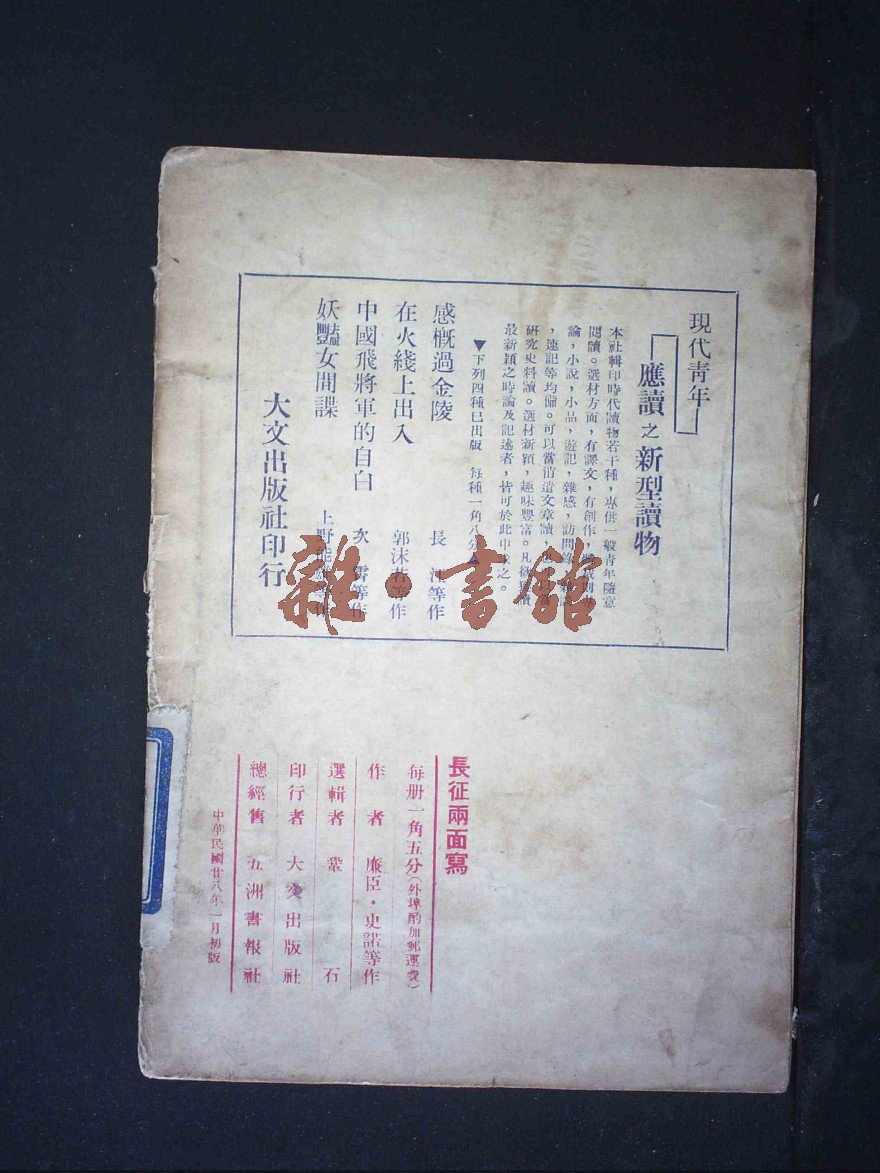 現代青年
應讀之新型讀物
本社輯印時代讀物若干種，專供一般青年隨意
閱讀。選材方面，有譯文，有創作，
論，小說，小品，遊記，雜感，訪問
，速記等均備。可以當消遣文章讀，
研究史料讀。選材新穎，趣味豐富。凡欲
最新穎之時論及記述者，皆可於此中之。
▼下列四種已出版　每種一角八分▲
感慨過金陵　長江等作
在火綫上出入　郭沫若等作
中國飛將軍的自白　次霄等作
妖豔女間諜　上野能
大文出版社印行
雜·書館
長征兩面寫
每册一角五分（外埠酌加郵運費）
作者　廉臣·史諾等作
選輯者　鞏石
印行者　大文出版社
總經售　五洲書報社
中華民國廿八年一月初版